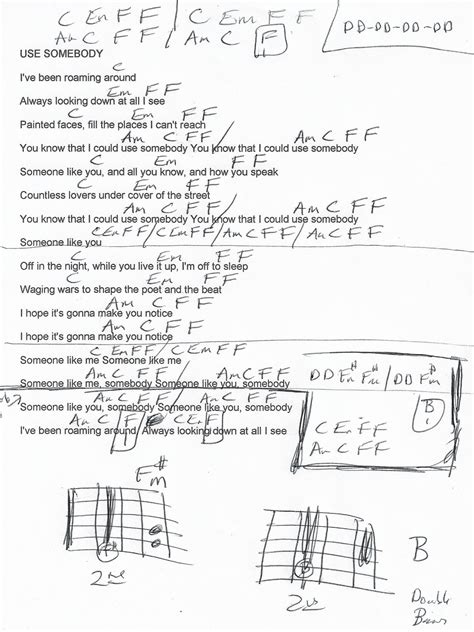 C Em F F / C Em F F
Am C F F / Am C F
DD-DD-DD-DD
USE SOMEBODY
C
I've been roaming around
Em F F
Always looking down at all I see
C Em F F
Painted faces, fill the places I can't reach
Am C F F / Am C F F
You know that I could use somebody You know that I could use somebody
C Em F F
Someone like you, and all you know, and how you speak
C Em F F
Countless lovers under cover of the street
Am C F F / Am C F F
You know that I could use somebody You know that I could use somebody
C Em F F / C Em F F / Am C F F / Am C F F
Someone like you
C Em F F
Off in the night, while you live it up, I'm off to sleep
C Em F F
Waging wars to shape the poet and the beat
Am C F F
I hope it's gonna make you notice
Am C F F
I hope it's gonna make you notice
C Em F F / C Em F F
Someone like me Someone like me
Am C F F / Am C F F
Someone like me, somebody Someone like you, somebody
Am C F F / Am C F F
Someone like you, somebody Someone like you, somebody
Am C F C Em F
I've been roaming around Always looking down at all I see
DD F#m F#m / DD F#m
B
C Em F F
Am C F F
F#m
B
B
2
2
Double